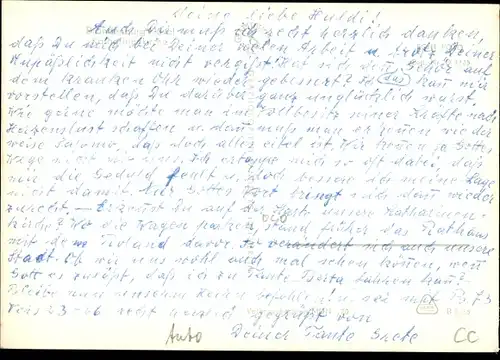 Meine liebe Huldi!
Auch Dir muß ich recht herzlich danken,
daß Du mich bei Deiner vielen Arbeit u. trotz Deiner
Unpäßlichkeit nicht vergißt. Hat sich das Gehör auf
dem kranken Ohr wieder gebessert? Ich das kann mir
vorstellen, daß Du darüber ganz unglücklich warst.
Wie gerne möchte man im Vollbesitz seiner Kräfte nach
Herzenslust schaffen u. dann muß man erkennen wie der
weise Salomo, daß doch alles eitel ist. Wir können ja Gottes
Wege nicht Ich ertappe mich so oft dabei, daß
mir die Geduld fehlt u. doch bessere ich meine Lage
nicht damit. Nur Gottes Wort bringt mich dann wieder
zurecht. — Erkennst Du auf der Karte unsere Katharinen-
kirche? Wo die Wagen parken, stand früher das Rathaus
mit dem Roland davor. So verändert sich auch unsere
Stadt. Ob wir uns wohl auch mal sehen können, wenn
Gott es zuläßt, daß ich zu Tante Berta fahren kann?
Bleibe nun unserem Herrn befohlen u. sei mit Ps. 73
Vers 23-26 recht gegrüßt von
Auto Deiner Tante Grete CC